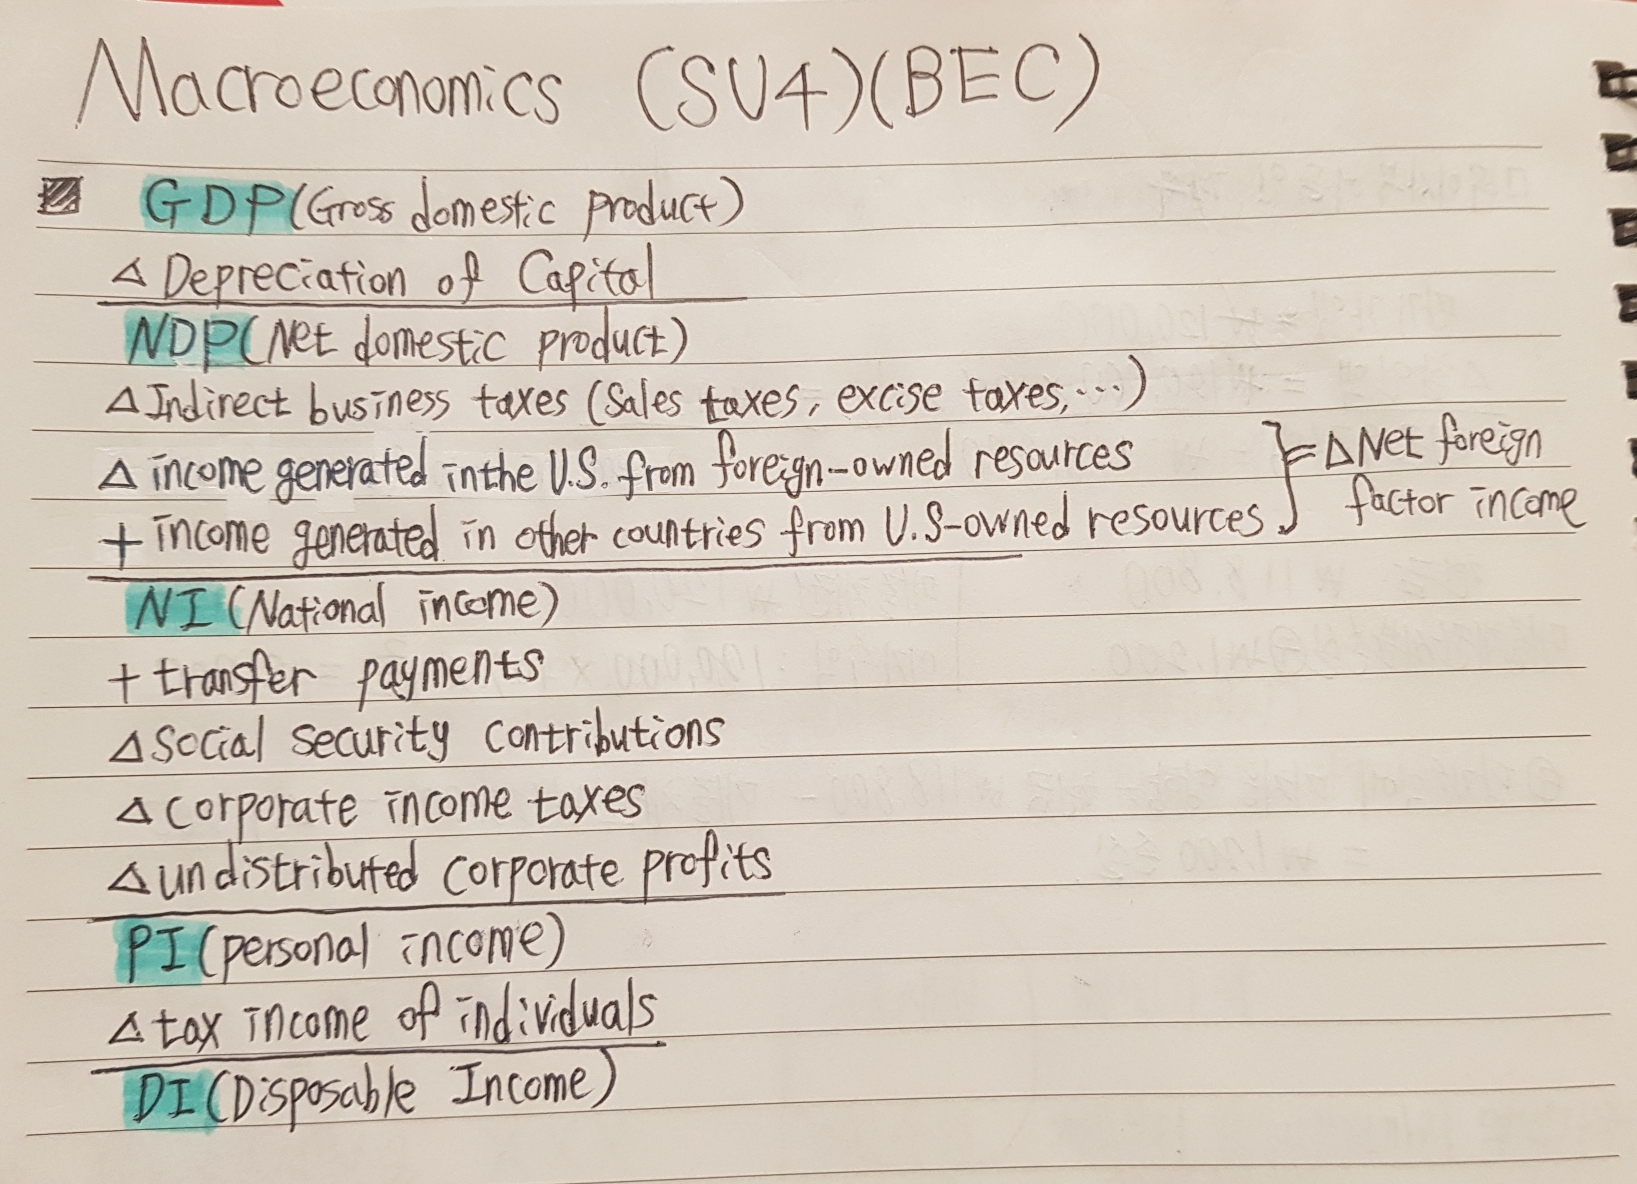 Macroeconomics (SU4)(BEC)
GDP(Gross domestic product)
△ Depreciation of Capital
NDP(Net domestic product)
△ Indirect business taxes (Sales taxes, excise taxes, ...)
△ income generated in the U.S. from foreign-owned resources
+ income generated in other countries from U.S-owned resources
= △ Net foreign
factor income
NI (National income)
+ transfer payments
△ Social security contributions
△ corporate income taxes
△ undistributed corporate profits
PI (personal income)
△ tax income of individuals
DI (Disposable Income)